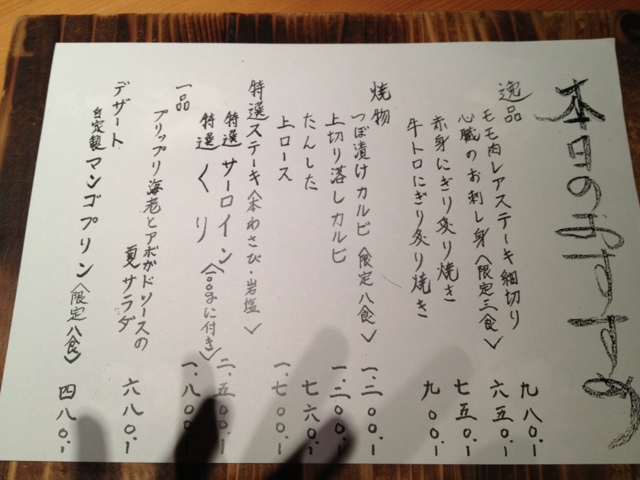 本日のおすすめ
逸品
モモ肉レアステーキ細切り 九八〇.ー
心臓のお刺し身〈限定三食〉 六五〇.ー
赤身にぎり炙り焼き 七五〇.ー
牛トロにぎり炙り焼き 九〇〇.ー
焼物
つぼ漬けカルビ〈限定八食〉 一.二〇〇.ー
上切り落しカルビ 一.二〇〇.ー
たんした 七六〇.ー
上ロース 一.七〇〇.ー
特選ステーキ〈本わさび・岩塩〉
特選サーロイン 二.五〇〇.ー
特選くり〈100gに付き〉 一.八〇〇.ー
一品
プリップリ海老とアボガドソースの
夏サラダ 六八〇.ー
デザート
自家製マンゴプリン〈限定八食〉 四八〇.ー